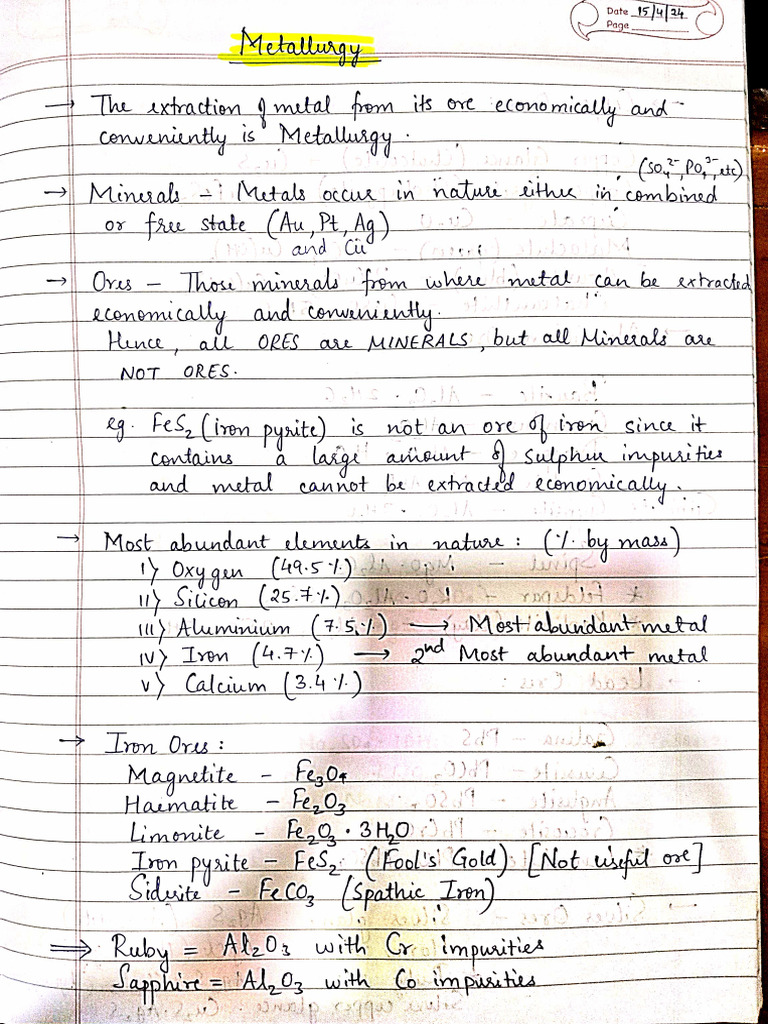 Date 15/4/24
Page
Metallurgy
→ The extraction of metal from its ore economically and
conveniently is Metallurgy.
(SO₄²⁻, PO₄³⁻, etc)
→ Minerals – Metals occur in nature either in combined
or free state (Au, Pt, Ag)
and Cu
→ Ores – Those minerals from where metal can be extracted
economically and conveniently.
Hence, all ORES are MINERALS, but all Minerals are
NOT ORES.
eg. FeS₂ (iron pyrite) is not an ore of iron since it
contains a large amount of sulphur impurities
and metal cannot be extracted economically.
→ Most abundant elements in nature : (% by mass)
I) Oxygen (49.5%)
II) Silicon (25.7%)
III) Aluminium (7.5%) → Most abundant metal
IV) Iron (4.7%) → 2nd Most abundant metal
V) Calcium (3.4%)
→ Iron Ores :
Magnetite – Fe₃O₄
Haematite – Fe₂O₃
Limonite – Fe₂O₃ · 3H₂O
Iron pyrite – FeS₂ (Fool's Gold) [Not useful ore]
Siderite – FeCO₃ (Spathic Iron)
⇒ Ruby = Al₂O₃ with Cr impurities
Sapphire = Al₂O₃ with Co impurities